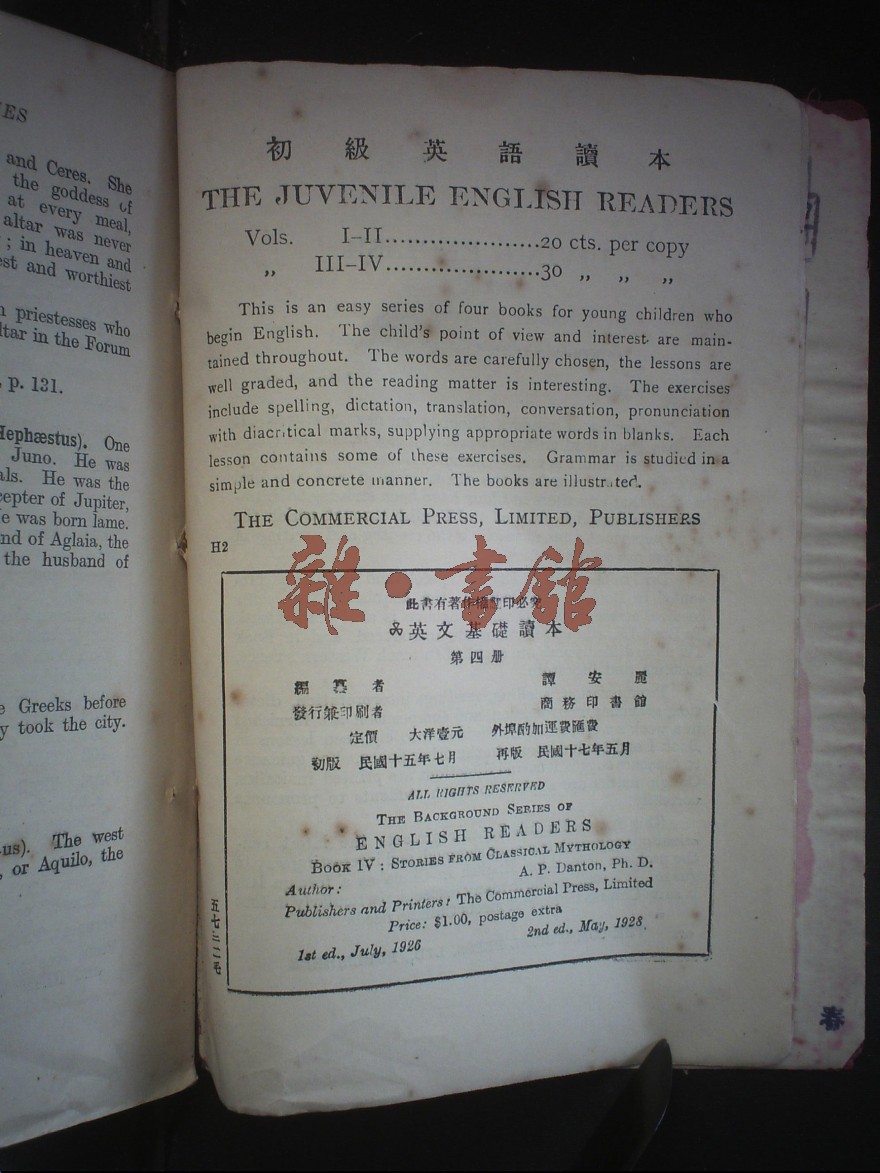 ES
and Ceres. She
the goddess of
at every meal,
altar was never
; in heaven and
est and worthiest
priestesses who
ltar in the Forum
, p. 131.
Hephæstus). One
Juno. He was
als. He was the
cepter of Jupiter,
e was born lame.
nd of Aglaia, the
the husband of
e Greeks before
y took the city.
us). The west
, or Aquilo, the
初級英語讀本
THE JUVENILE ENGLISH READERS
Vols. I–II......................20 cts. per copy
„ III–IV......................30 „ „ „
This is an easy series of four books for young children who
begin English. The child's point of view and interest are main-
tained throughout. The words are carefully chosen, the lessons are
well graded, and the reading matter is interesting. The exercises
include spelling, dictation, translation, conversation, pronunciation
with diacritical marks, supplying appropriate words in blanks. Each
lesson contains some of these exercises. Grammar is studied in a
simple and concrete manner. The books are illustrated.
THE COMMERCIAL PRESS, LIMITED, PUBLISHERS
H2
雜·書館
此書有著作權翻印必究
英文基礎讀本
第四册
編纂者 譚安麗
發行兼印刷者 商務印書館
定價 大洋壹元 外埠酌加運費匯費
初版 民國十五年七月 再版 民國十七年五月
ALL RIGHTS RESERVED
THE BACKGROUND SERIES OF
ENGLISH READERS
BOOK IV: STORIES FROM CLASSICAL MYTHOLOGY
Author: A. P. Danton, Ph. D.
Publishers and Printers: The Commercial Press, Limited
Price: $1.00, postage extra
1st ed., July, 1926 2nd ed., May, 1928
春